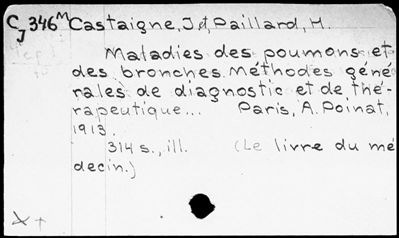 CJ 346M Castaigne, J. et, Paillard, H.
Maladies des poumons et
des bronches. Méthodes géné-
rales de diagnostic et de thé-
rapeutique... Paris, A. Poinat,
1913.
314 s., ill. (Le livre du mé
decin.)